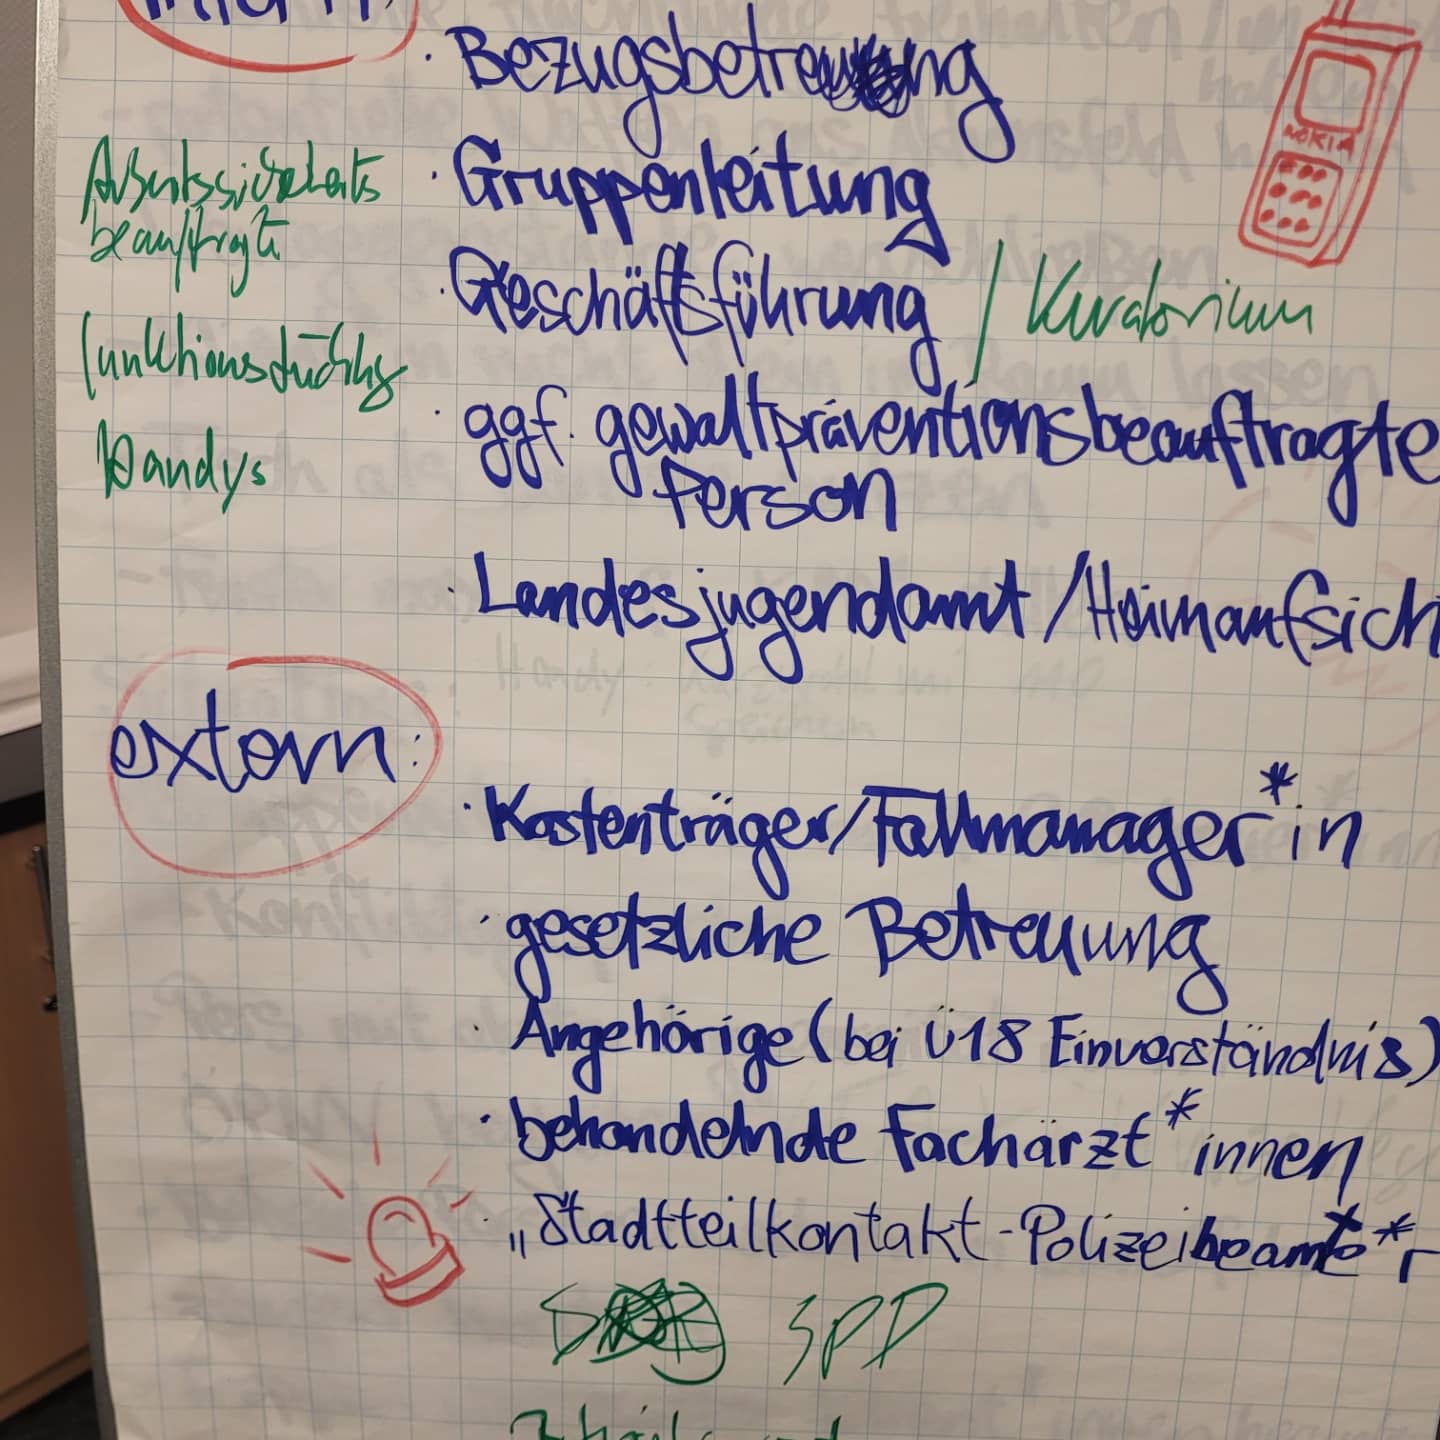 intern:
· Bezugsbetreuung
NOKIA
Arbeitssicherheits
beauftragte
· Gruppenleitung
· Geschäftsführung / Kuratorium
funktionstüchtig
Handys
· ggf. gewaltpräventionsbeauftragte
Person
· Landesjugendamt / Heimaufsich
extern:
· Kostenträger/Fallmanager*in
· gesetzliche Betreuung
· Angehörige (bei Ü18 Einverständnis)
· behandelnde Fachärzt*innen
· „Stadtteilkontakt-Polizeibeamte*r
SPD